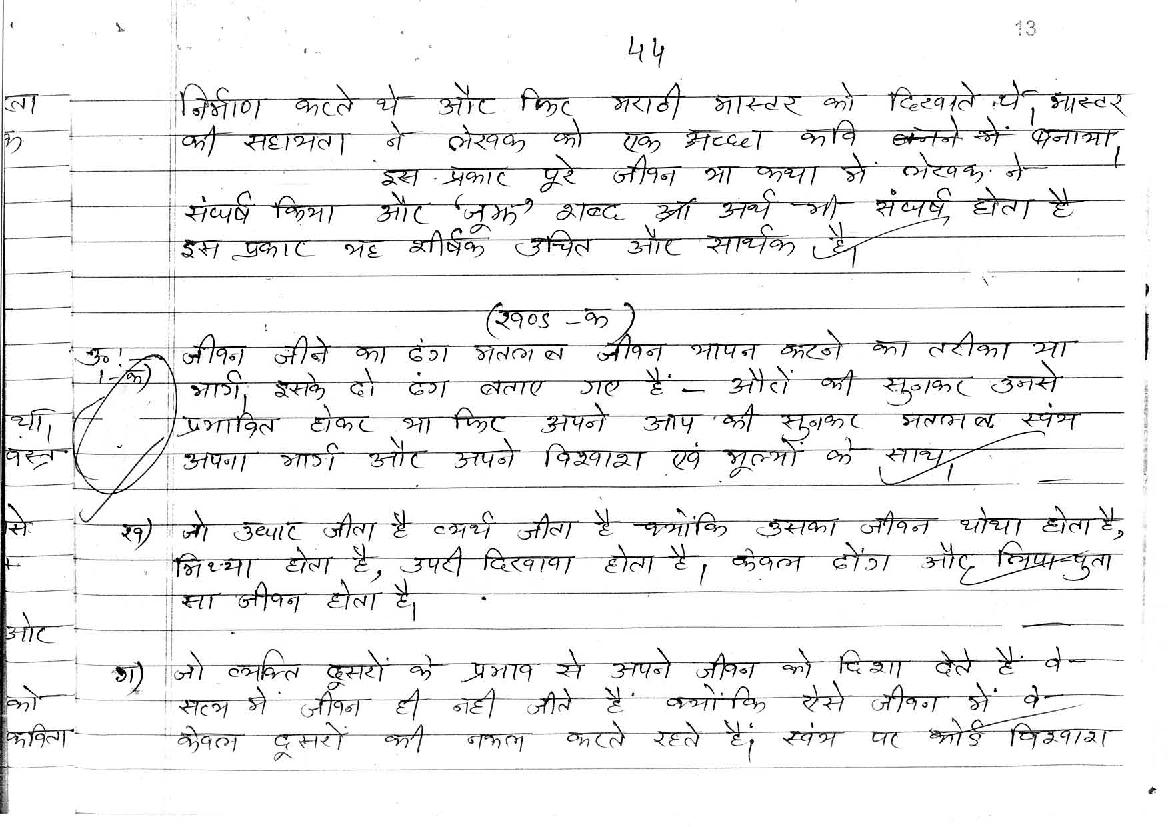 13
44
निर्माण करते थे और फिर मराठी मास्टर को दिखाते थे। मास्टर
की सहायता ने लेखक को एक अच्छा कवि बनने में बनाया।
इस प्रकार पूरे जीवन या कथा में लेखक ने
संघर्ष किया और 'जूझ' शब्द का अर्थ भी संघर्ष होता है
इस प्रकार यह शीर्षक उचित और सार्थक है।
(खण्ड - क)
उ०: जीवन जीने का ढंग मतलब जीवन यापन करने का तरीका या
1-क) मार्ग। इसके दो ढंग बताए गए हैं - औरों की सुनकर उनसे
प्रभावित होकर या फिर अपने आप की सुनकर मतलब स्वंय
अपना मार्ग और अपने विश्वाश एवं मूल्यों के साथ।
ख) जो उधार जीता है व्यर्थ जीता है क्योंकि उसका जीवन थोथा होता है,
मिथ्या होता है, उपरी दिखावा होता है। केवल ढोंग और लिपा-पुता
सा जीवन होता है।
ग) जो व्यक्ति दूसरों के प्रभाव से अपने जीवन को दिशा देते हैं वे
सत्य में जीवन ही नही जीते हैं क्योंकि ऐसे जीवन में वे
केवल दूसरों की नकल करते रहते है। स्वंय पर कोई विश्वाश
ता
क
र्था।
वस्त
से
ओर
को
कविता